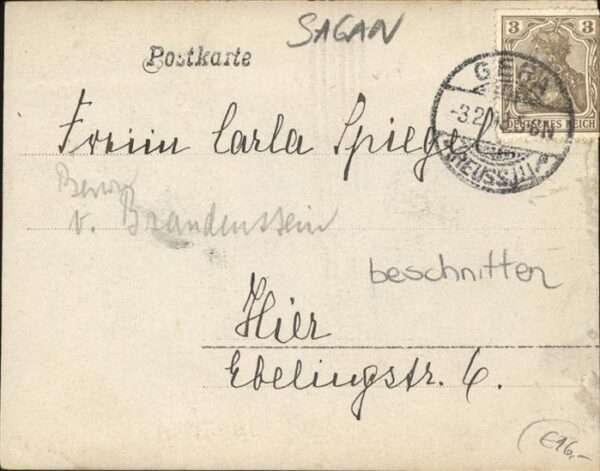 SAGAN
3 3
DEUTSCHES REICH
Postkarte
GERA
-3.2
N
(REUSS)
Carla Spiegel
v. Brandenstein
beschnitten
Hier
Ebelingstr. 6.
€16,-